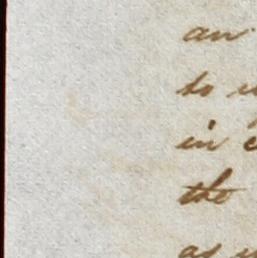 an
to
in
the
as